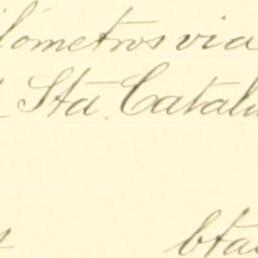 ilómetros via
Sta. Catal
bta